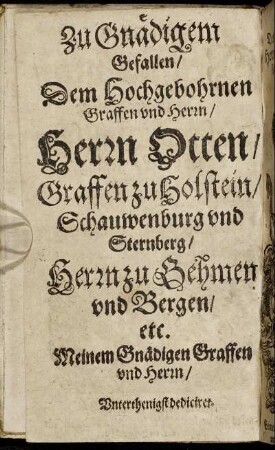 Zu Gnädigem
Gefallen/
Dem Hochgebohrnen
Graffen vnd Herrn/
Herrn Otten/
Graffen zu Holstein/
Schauwenburg vnd
Sternberg/
Herrn zu Gehmen
vnd Bergen/
etc.
Meinem Gnädigen Graffen
vnd Herrn/
Vnterthenigst dediciret.